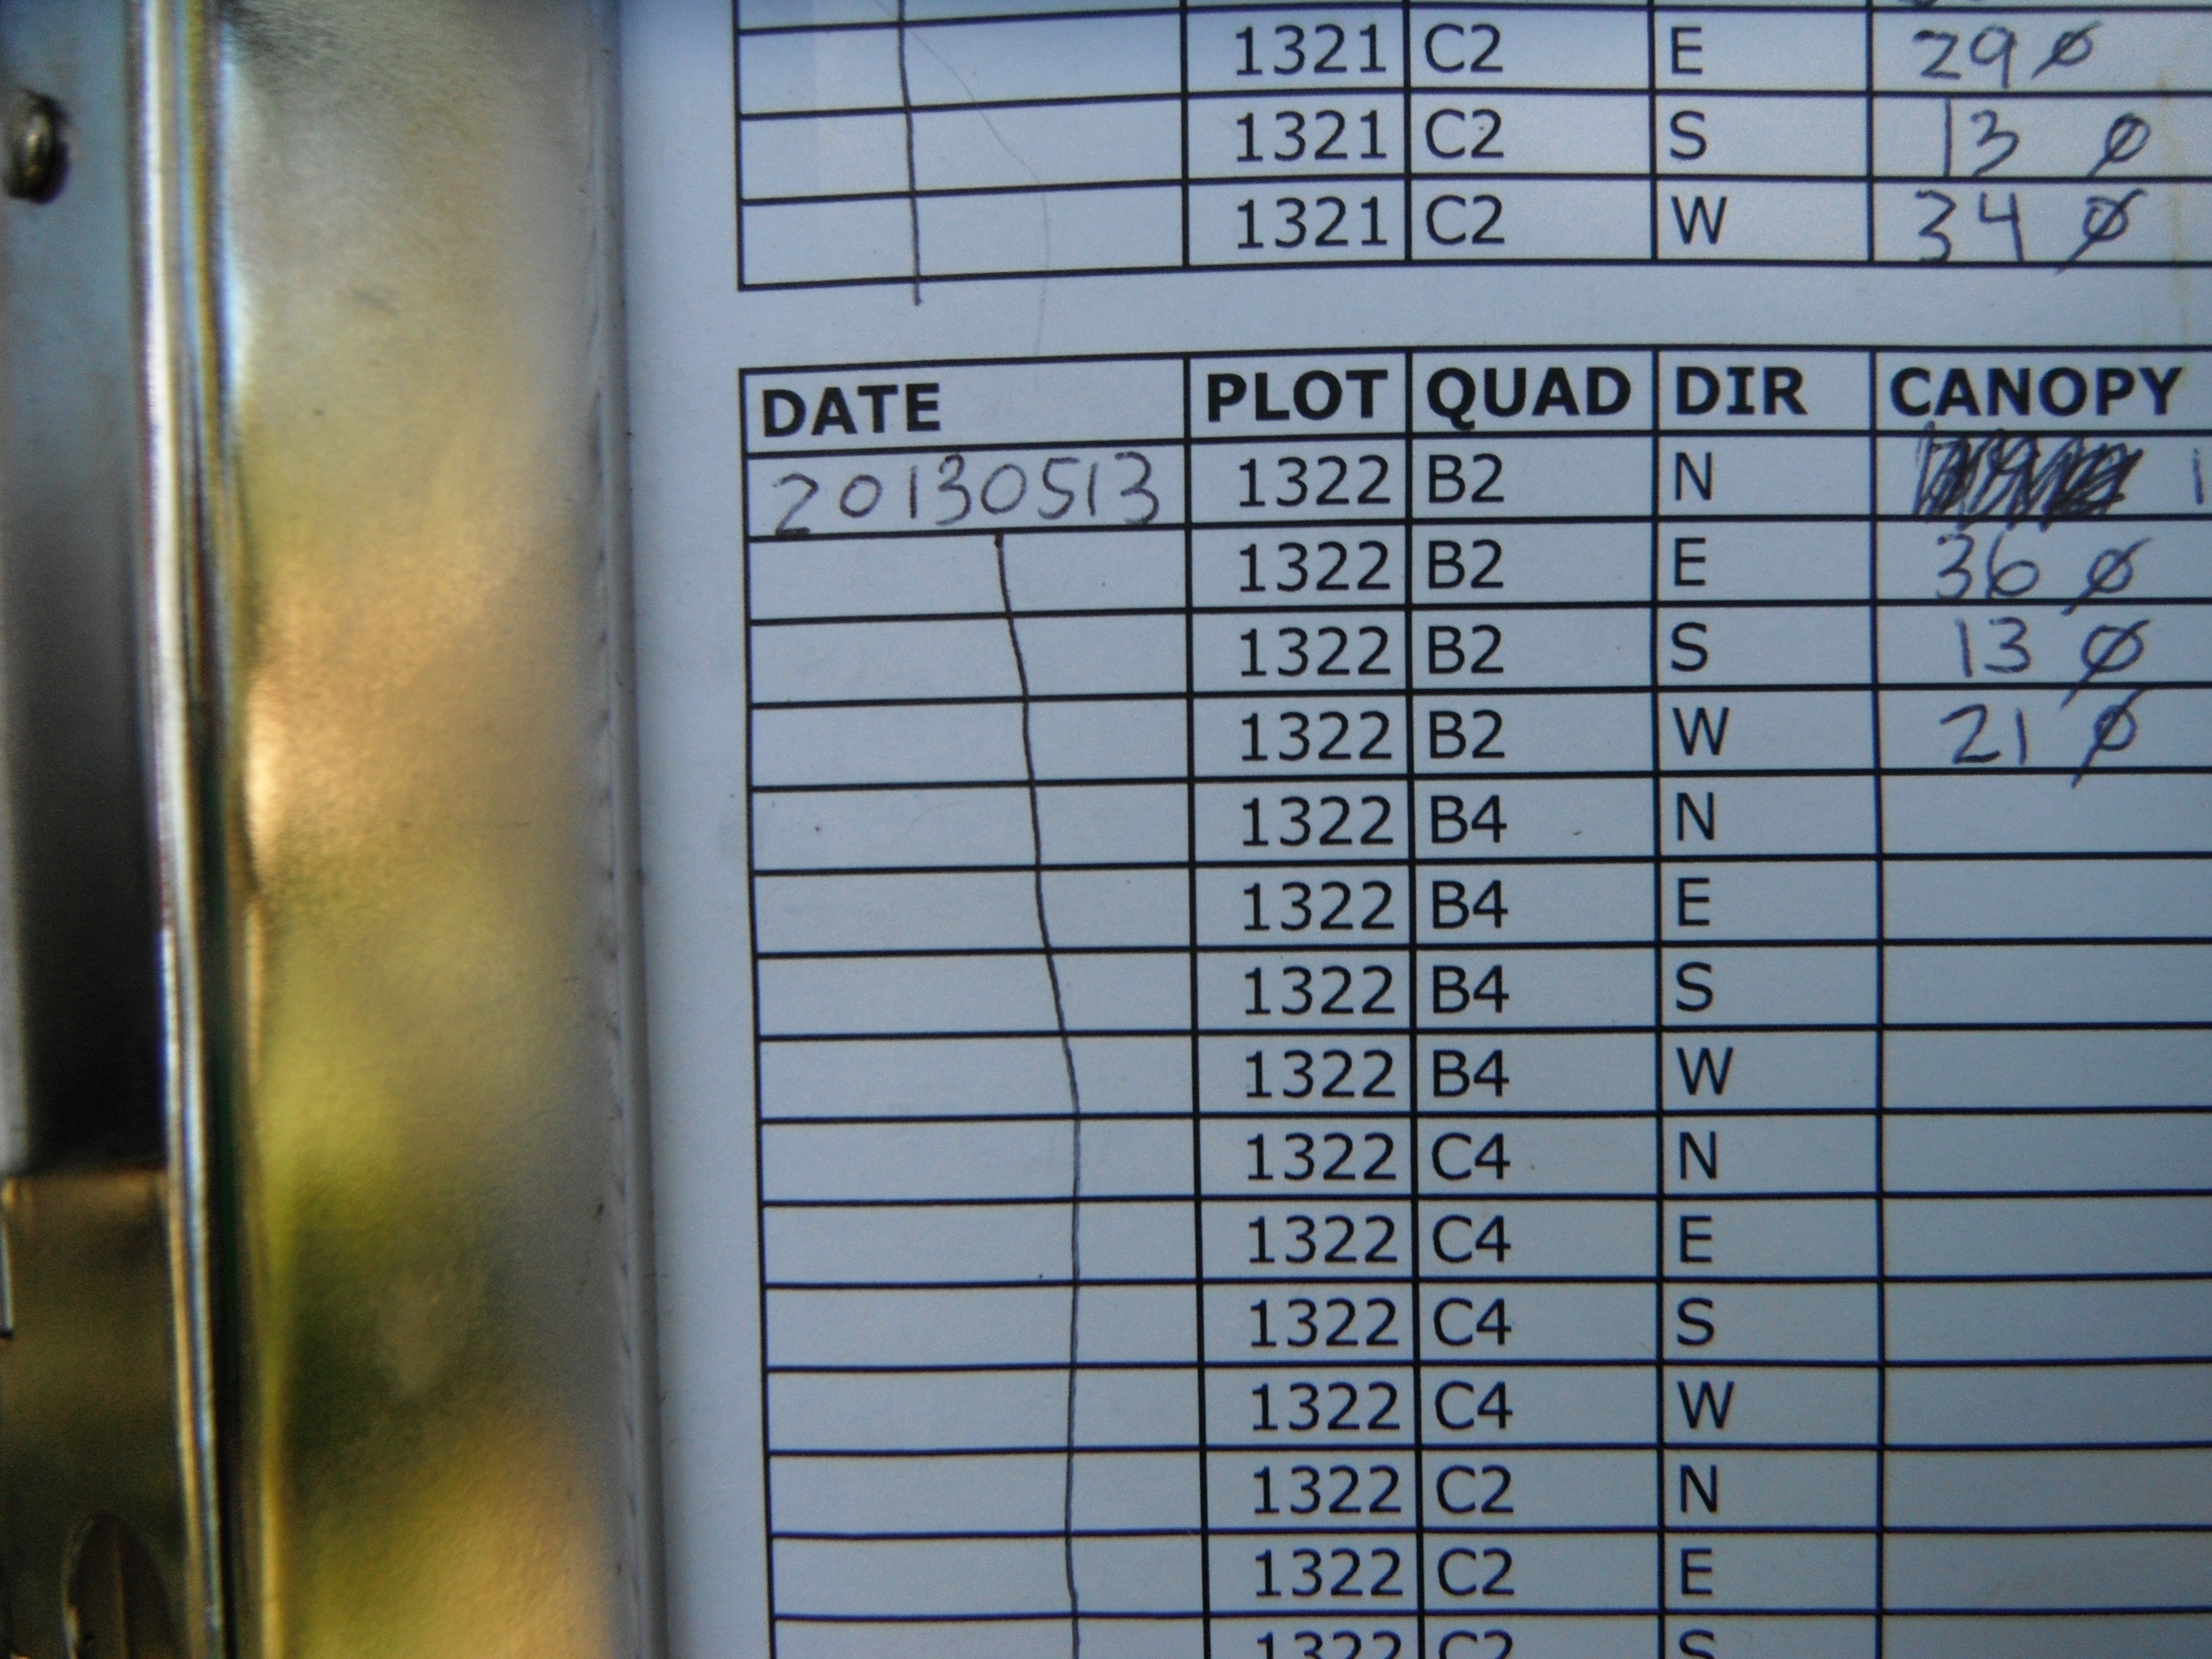 1321 C2 E 29 ø
1321 C2 S 13 ø
1321 C2 W 34 ø
DATE PLOT QUAD DIR CANOPY
20130513 1322 B2 N 1
1322 B2 E 36 ø
1322 B2 S 13 ø
1322 B2 W 21 ø
1322 B4 N
1322 B4 E
1322 B4 S
1322 B4 W
1322 C4 N
1322 C4 E
1322 C4 S
1322 C4 W
1322 C2 N
1322 C2 E
1322 C2 S